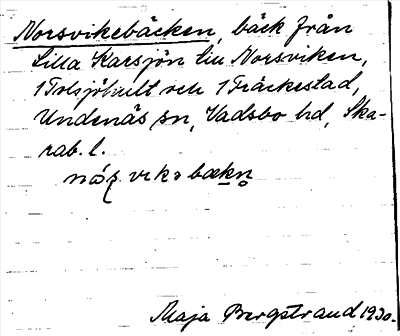 Norsvikebäcken, bäck från
Lilla Karsjön till Norsviken,
1 Tolsjöhult och 1 Fräckestad,
Undenäs sn, Vadsbo hd, Ska-
rab. l.
Maja Bergstrand 1930.